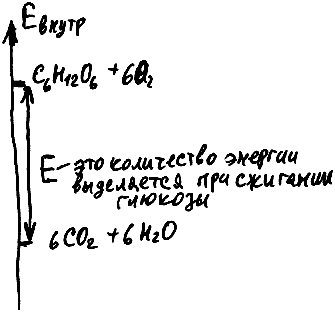 Eвнутр
C6H12O6 + 6O2
E - это количество энергии
выделяется при сжигании
глюкозы
6CO2 + 6H2O